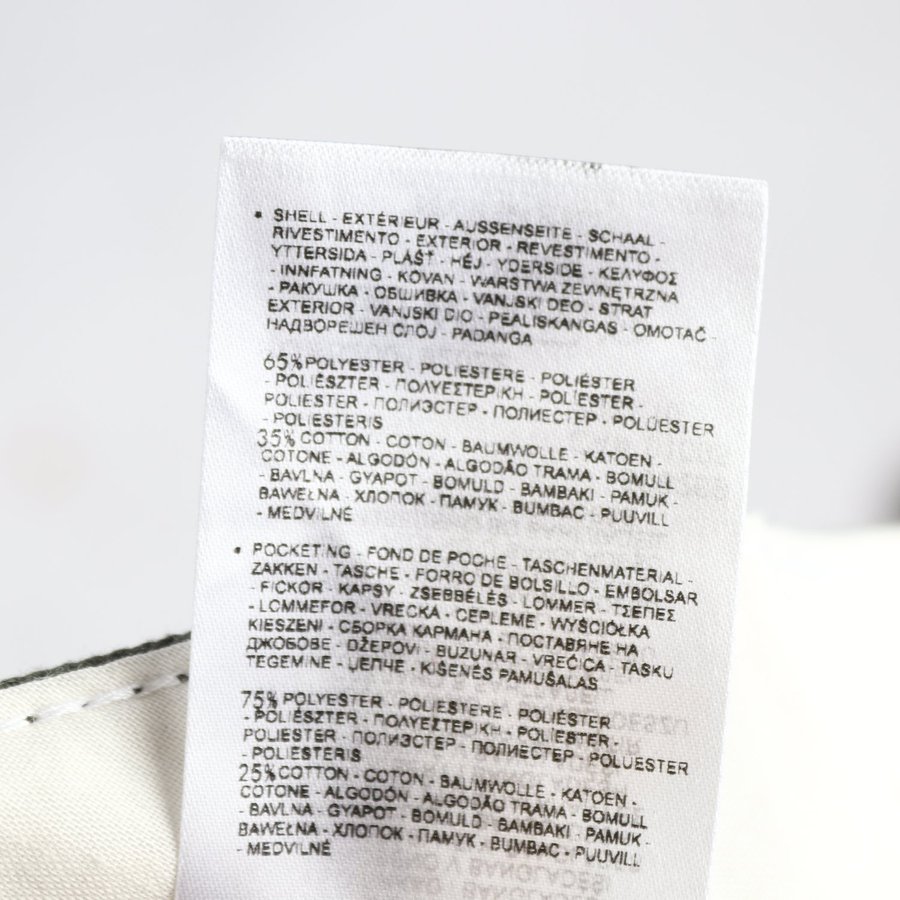 • SHELL - EXTÉRIEUR - AUSSENSEITE - SCHAAL -
RIVESTIMENTO - EXTERIOR - REVESTIMENTO -
YTTERSIDA - PLÁŠŤ - HÉJ - YDERSIDE - ΚΕΛΥΦΟΣ
- INNFATNING - KOVAN - WARSTWA ZEWNĘTRZNA
- РАКУШКА - ОБШИВКА - VANJSKI DEO - STRAT
EXTERIOR - VANJSKI DIO - PEALISKANGAS - ОМОТАЧ -
НАДВОРЕШЕН СЛОЈ - PADANGA
65% POLYESTER - POLIESTERE - POLIÉSTER
- POLIÉSZTER - ΠΟΛΥΕΣΤΕΡΙΚΗ - POLİESTER -
POLIESTER - ПОЛИЭСТЕР - ПОЛИЕСТЕР - POLÜESTER
- POLIESTERIS
35% COTTON - COTON - BAUMWOLLE - KATOEN -
COTONE - ALGODÓN - ALGODÃO TRAMA - BOMULL
- BAVLNA - GYAPOT - BOMULD - BAMBAKI - PAMUK -
BAWEŁNA - ХЛОПОК - ПАМУК - BUMBAC - PUUVILL
- MEDVILNĖ
• POCKETING - FOND DE POCHE - TASCHENMATERIAL -
ZAKKEN - TASCHE - FORRO DE BOLSILLO - EMBOLSAR
- FICKOR - KAPSY - ZSEBBÉLÉS - LOMMER - ΤΣΕΠΕΣ
- LOMMEFOR - VRECKA - CEPLEME - WYŚCIÓŁKA
KIESZENI - СБОРКА КАРМАНА - ПОСТАВЯНЕ НА
ДЖОБОВЕ - DŽEPOVI - BUZUNAR - VREĆICA - TASKU
TEGEMINE - ЏЕПЧЕ - KIŠENĖS PAMUŠALAS
75% POLYESTER - POLIESTERE - POLIÉSTER
- POLIÉSZTER - ΠΟΛΥΕΣΤΕΡΙΚΗ - POLİESTER -
POLIESTER - ПОЛИЭСТЕР - ПОЛИЕСТЕР - POLÜESTER
- POLIESTERIS
25% COTTON - COTON - BAUMWOLLE - KATOEN -
COTONE - ALGODÓN - ALGODÃO TRAMA - BOMULL
- BAVLNA - GYAPOT - BOMULD - BAMBAKI - PAMUK -
BAWEŁNA - ХЛОПОК - ПАМУК - BUMBAC - PUUVILL
- MEDVILNĖ